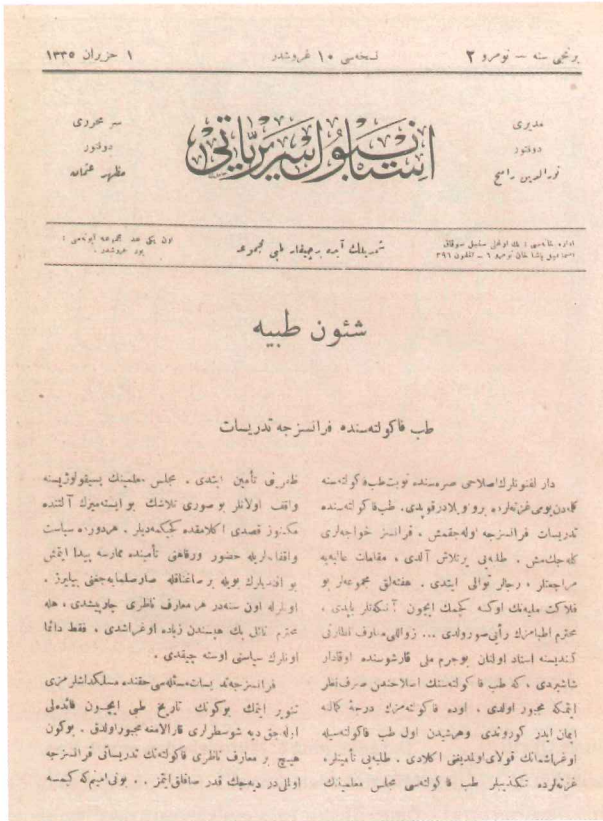 برنجى سنه — نومرو ٢
نسخه‌سى ١٠ غروشدر
١ حزيران ١٣٣٥
مديرى
دوقتور
نورالدين رامح
استانبول سريرياتى
سر محررى
دوقتور
مظهر عثمان
اداره خانه‌سى :
اسماعيل پاشا خان نومرو ٦ — تلفون ٣٩٦
شمديلك آيده بر چيقار طبى مجموعه
اون ايكى عدد مجموعه آبونه‌سى :
يوز غروشدر .
شئون طبيه
طب فاكولته‌سنده فرانسزجه تدريسات
دار الفنونلرك اصلاحى صره‌سنده نوبت طب فاكولته‌سنه
كلدن يومى غزته‌لرده بر واويلادر قوپدى. طب فاكولته‌سنده
تدريسات فرانسزجه اوله‌جقمش ، فرانسز خواجه‌لرى
كله‌جكمش . طلبه‌يى بر تلاش آلدى ، مقامات عاليه‌يه
مراجعتلر ، رجالر توالى ايتدى . هفته‌لق مجموعه‌لر بو
فلاكت مليه‌نك اوكنه كچمك ايچون آنكتلر ياپدى ،
محترم اطبامزك رأيى صورولدى ... زواللى معارف نظارتى
كنديسنه اسناد اولنان بو جرم ملى قارشوسنده اوقادار
شاشيردى ، كه طب فاكولته‌سنك اصلاحندن صرف نظر
ايتمكه مجبور اولدى ، اوده فاكولته‌مزك درجهٔ كماله
ايمان ايدر كوروندى و هرشيدن اول طب فاكولته‌سيله
اوغراشمانك قولاى اولمديغنى اكلادى . طلبه‌يى تأمينلر ،
غزته‌لرده تكذيبلر طب فاكولته‌سى مجلس معلمينك
ظفرينى تأمين ايتدى . مجلس معلمينك پسيقولوژيسنه
واقف اولانلر بو صورى تلاشك بو ايسته‌ميرك آلتنده
مكنوز قصدى اكلامقده كجيكمه‌ديلر . هر دورده سياست
واقفانه‌لريله حضور ورفاهنى تأمينده ممارسه پيدا ايتمش
بو افنديلرك بويله بر صاغناقله صارصلمايه‌جغنى بيليرز .
اونلرله اون سنه‌در هر معارف ناظرى چارپيشدى ، هله
محترم نائل بك هپسندن زياده اوغراشدى . فقط دائما
اونلرك سياستى اوسته چيقدى .
فرانسزجه تدريسات مسئله‌سى حقنده مسلكداشلرمزى
تنوير ايتمك بوكونك تاريخ طبى ايچيون فائده‌لى
اوله‌جق ديه شو سطرلرى قارالامغه مجبور اولدق . بوكون
هيچ بر معارف ناظرى فاكولته‌نك تدريساتى فرانسزجه
اولمالى در ديه‌جك قدر صافلق ايتمز . . بونى امينم كه كيمسه